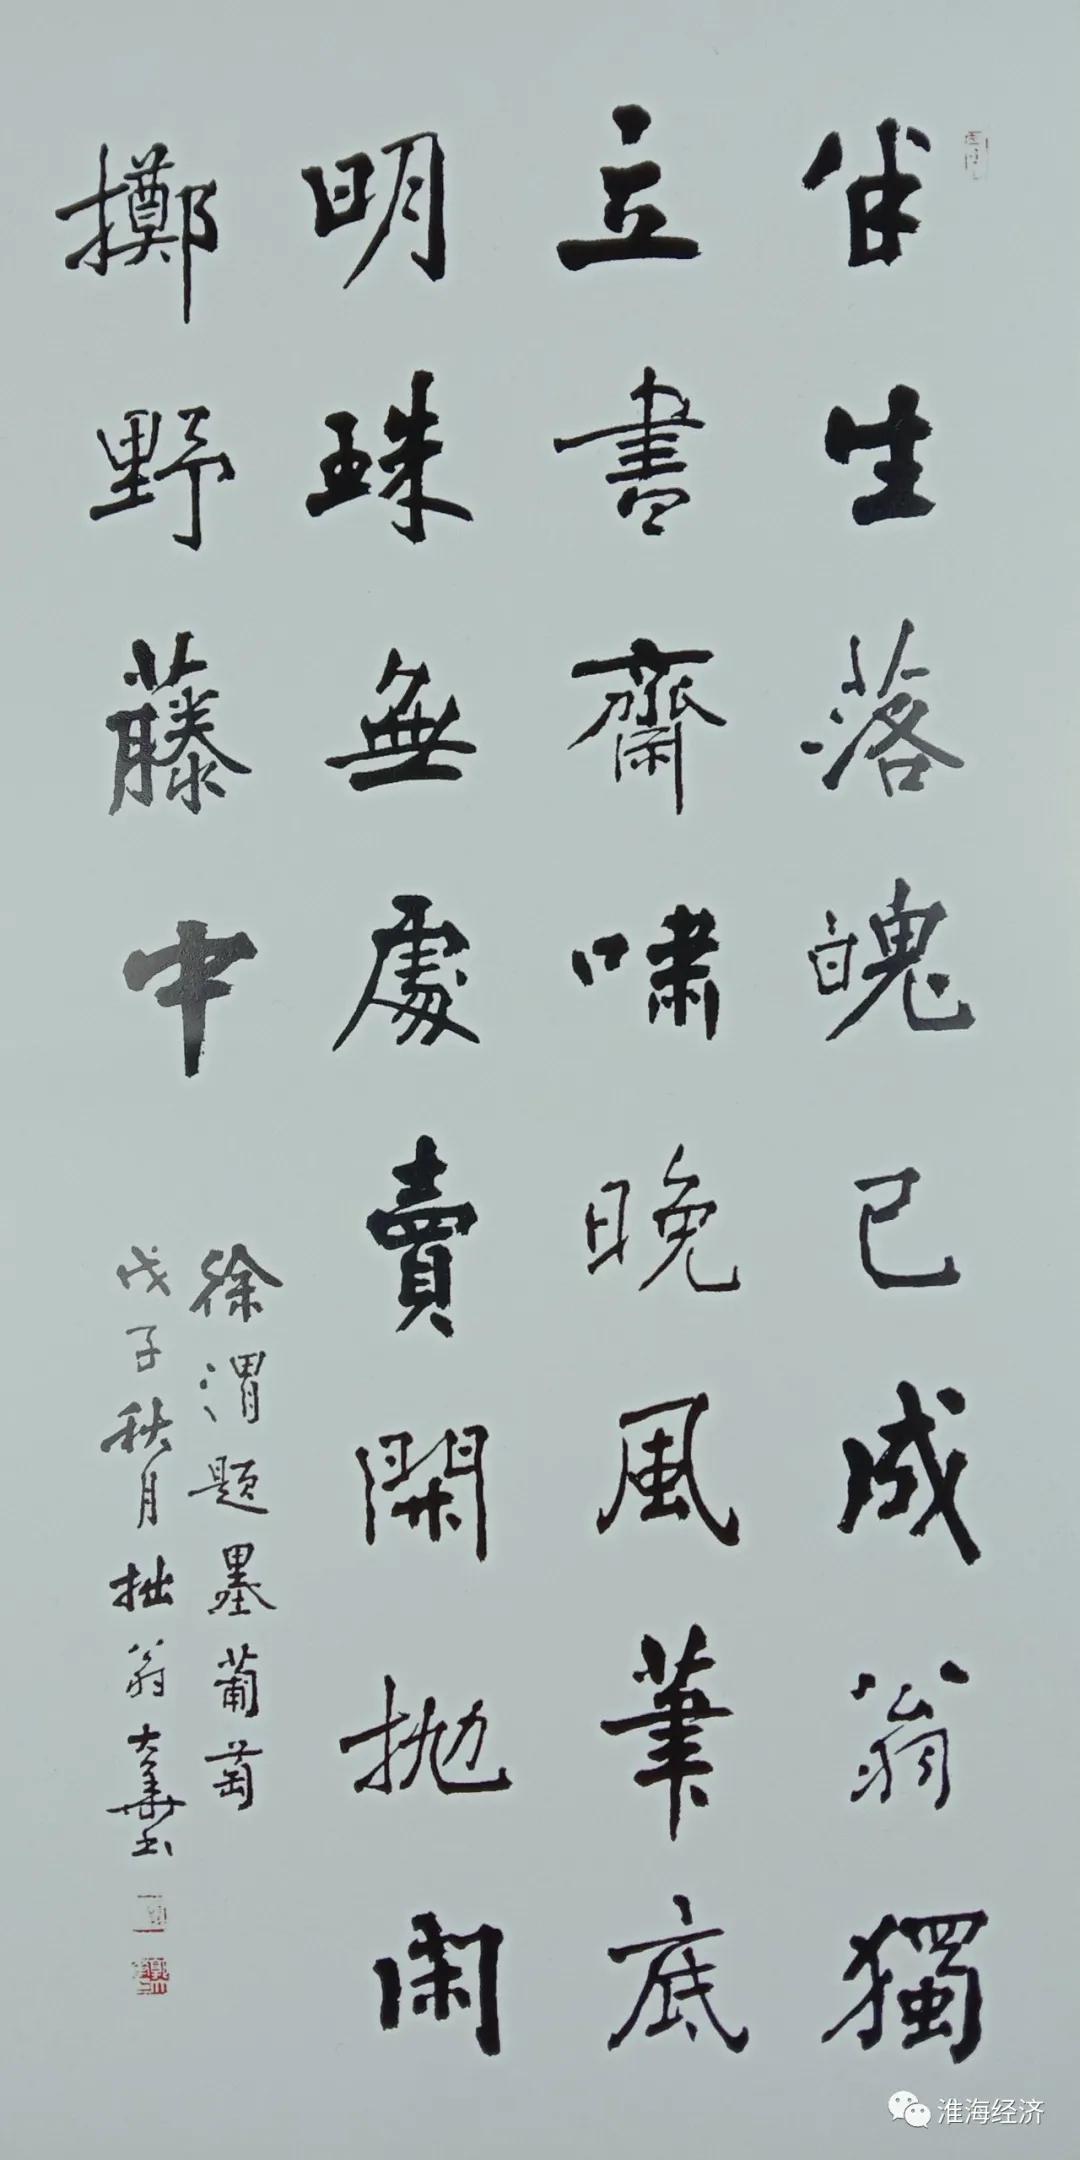 半生落魄已成翁獨
立書齋嘯晚風筆底
明珠無處賣閑抛閑
擲野藤中
徐渭題墨葡萄
戊子秋月拙翁
淮海经济